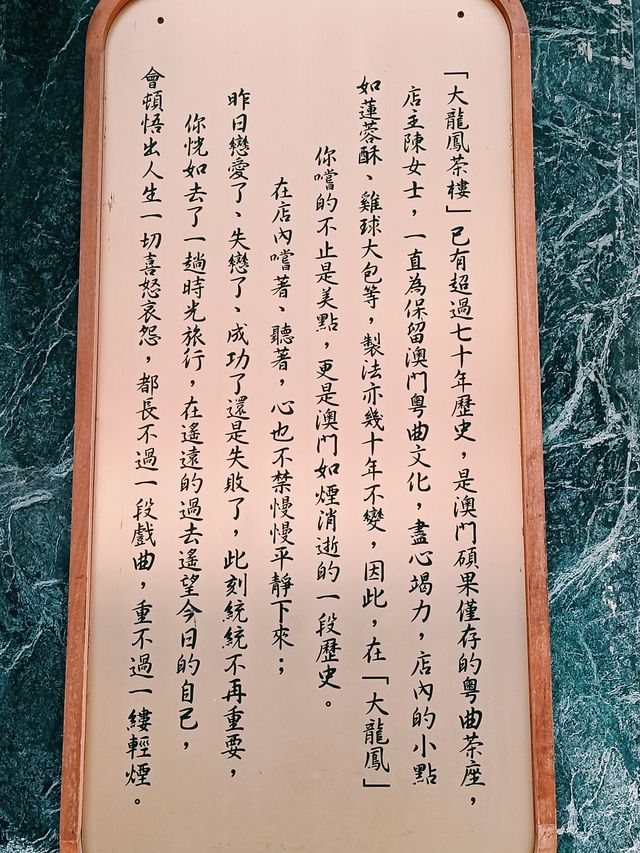 「大龍鳳茶樓」已有超過七十年歷史，是澳門碩果僅存的粵曲茶座，
店主陳女士，一直為保留澳門粵曲文化，盡心竭力，店內的小點
如蓮蓉酥、雞球大包等，製法亦幾十年不變，因此，在「大龍鳳」
你嚐的不止是美點，更是澳門如煙消逝的一段歷史。
在店內嚐著、聽著，心也不禁慢慢平靜下來；
昨日戀愛了、失戀了、成功了還是失敗了，此刻統統不再重要，
你恍如去了一趟時光旅行，在遙遠的過去遙望今日的自己，
會頓悟出人生一切喜怒哀怨，都長不過一段戲曲，重不過一縷輕煙。